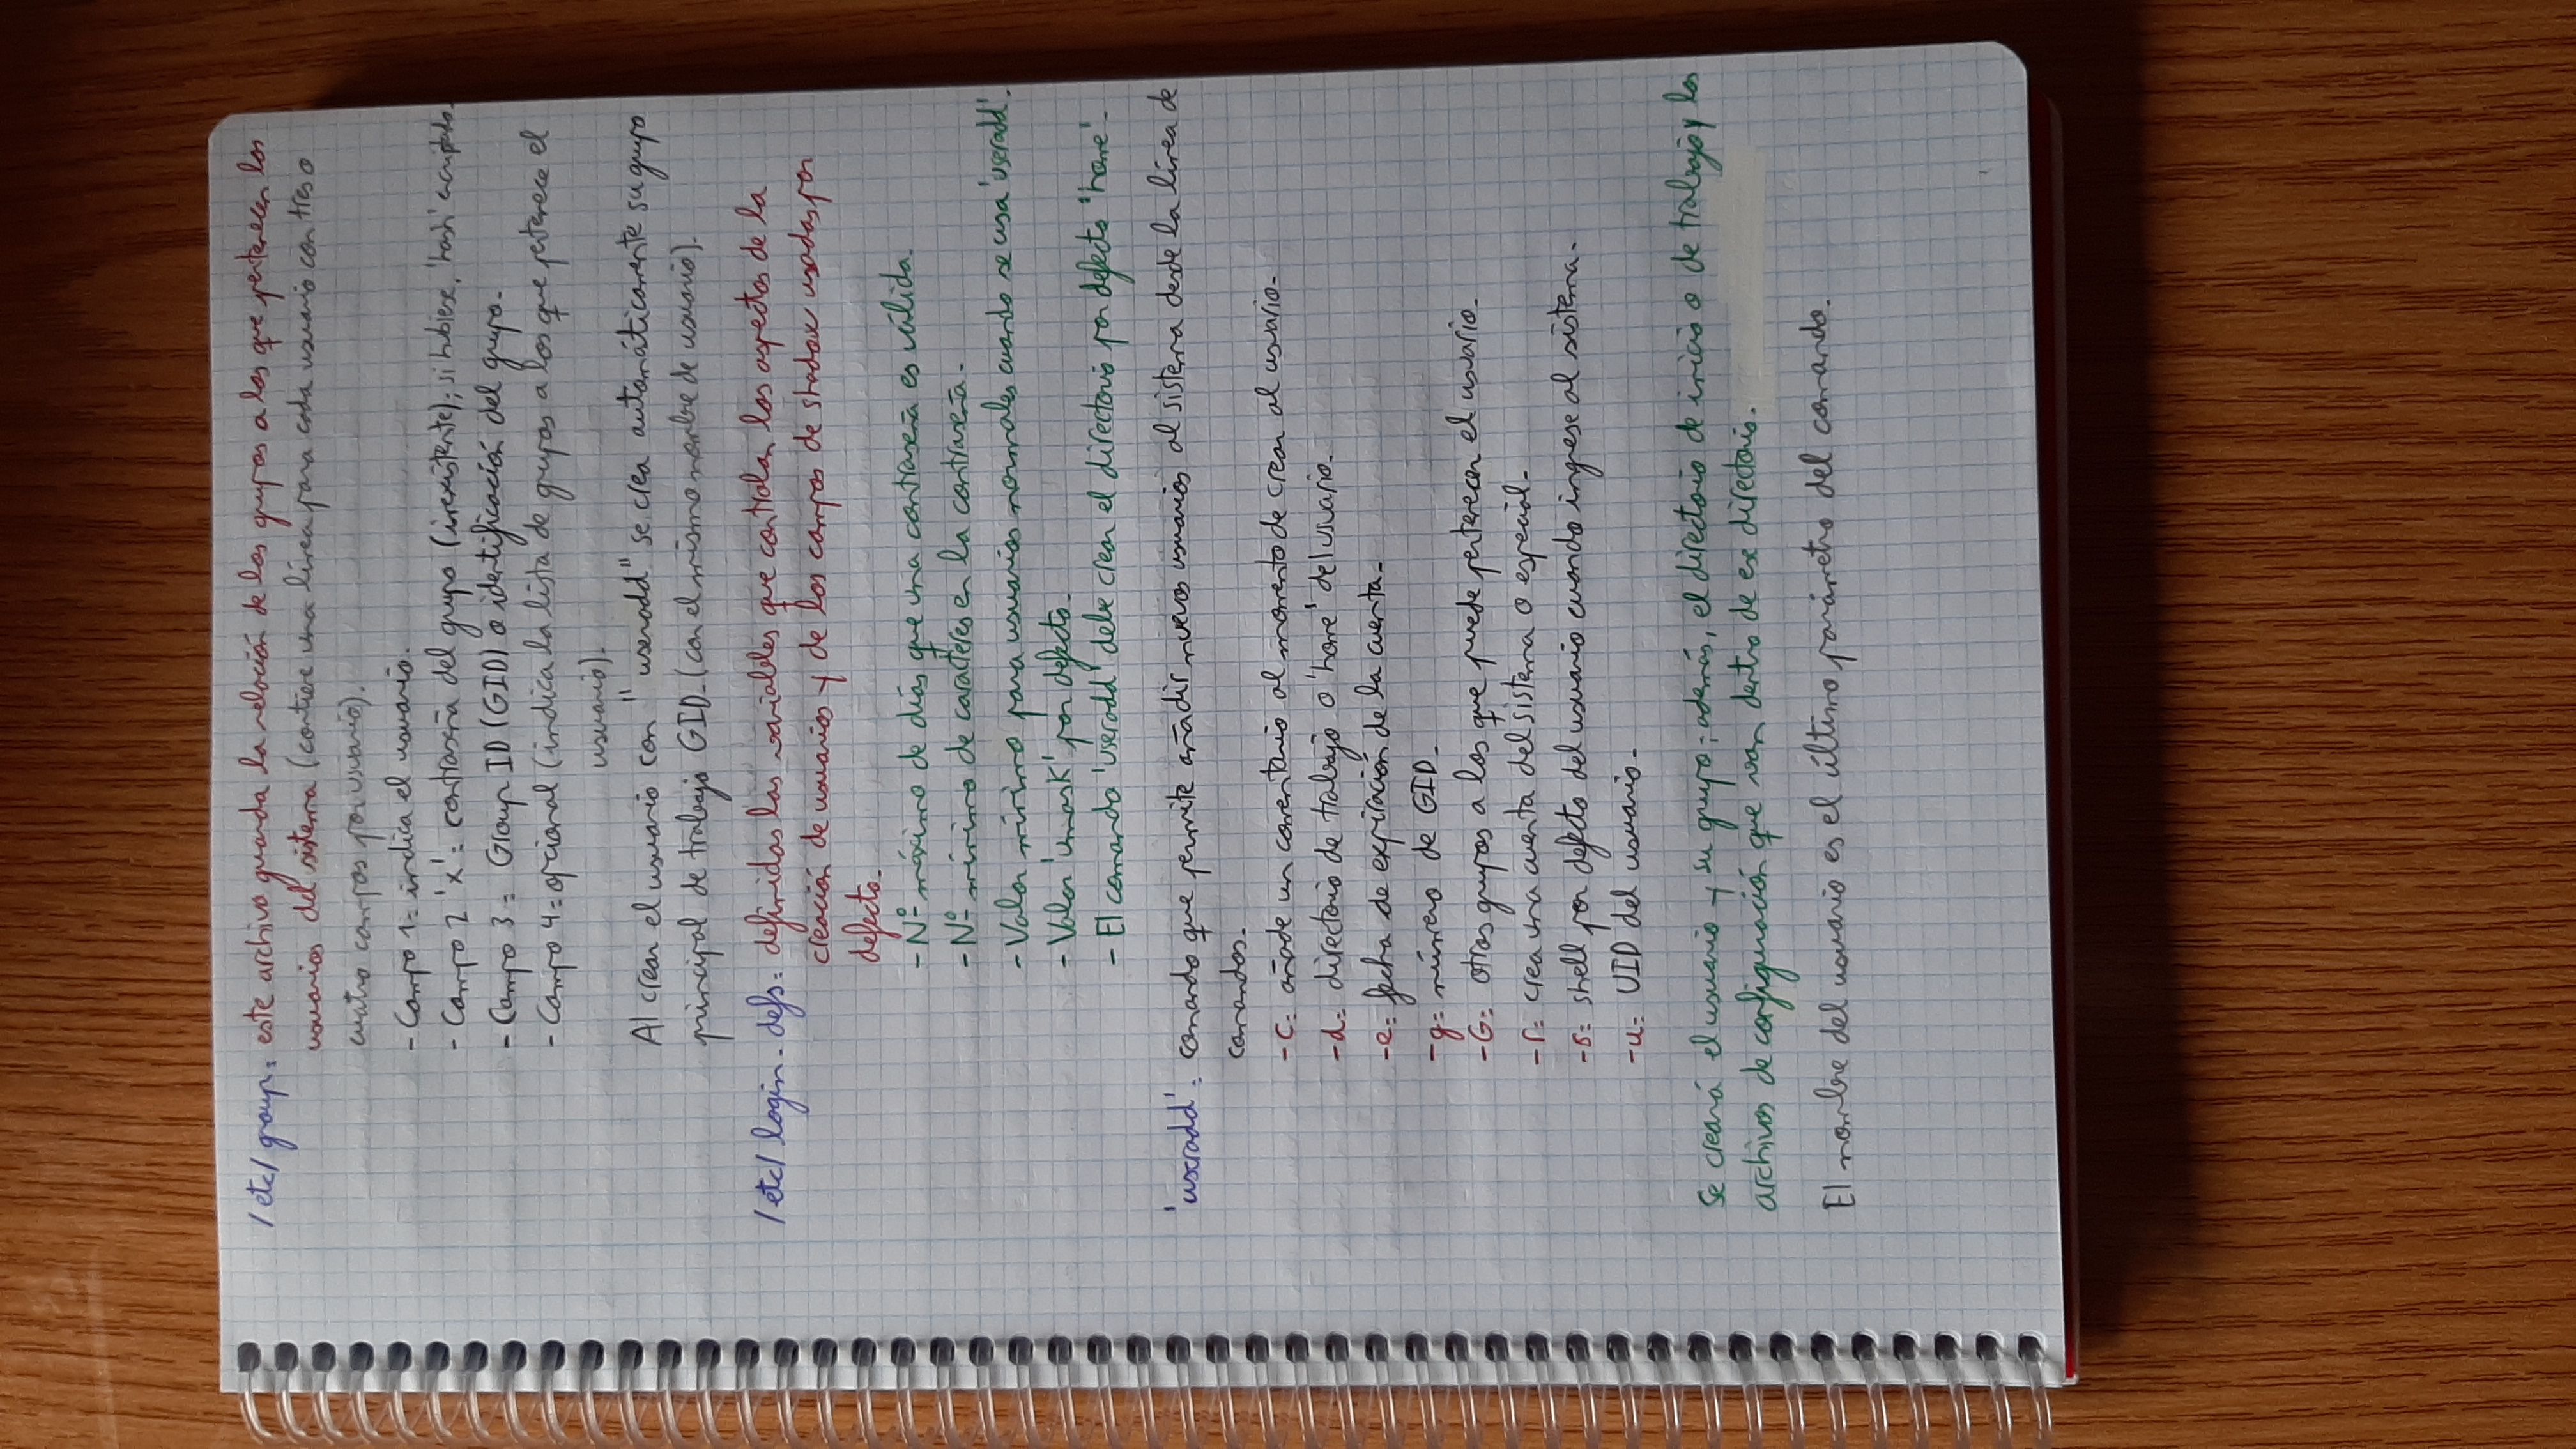 /etc/group: este archivo guarda la relación de los grupos a los que pertenecen los
usuarios del sistema (contiene una línea para cada usuario con tres o
cuatro campos por usuario).
- Campo 1: indica el usuario.
- Campo 2 'x': contraseña del grupo (inexistente); si hubiese, 'hash' encriptado.
- Campo 3: Group ID (GID) o identificación del grupo.
- Campo 4: opcional (indica la lista de grupos a los que pertenece el
usuario).
Al crear el usuario con "useradd" se crea automáticamente su grupo
principal de trabajo GID. (con el mismo nombre de usuario).
/etc/login.defs: definidas las variables que controlan los aspectos de la
creación de usuarios y de los campos de shadow usadas por
defecto.
- Nº máximo de días que una contraseña es válida.
- Nº mínimo de caracteres en la contraseña.
- Valor mínimo para usuarios normales cuando se usa 'useradd'.
- Valor 'umask' por defecto.
- El comando 'useradd' debe crear el directorio por defecto 'home'.
'useradd': comando que permite añadir nuevos usuarios al sistema desde la línea de
comandos.
-c: añade un comentario al momento de crear al usuario.
-d: directorio de trabajo o 'home' del usuario.
-e: fecha de expiración de la cuenta.
-g: número de GID.
-G: otros grupos a los que puede pertenecer el usuario.
-r: crea una cuenta del sistema o especial.
-s: shell por defecto del usuario cuando ingrese al sistema.
-u: UID del usuario.
Se creará el usuario y su grupo; además, el directorio de inicio o de trabajo y los
archivos de configuración que van dentro de ese directorio.
El nombre del usuario es el último parámetro del comando.